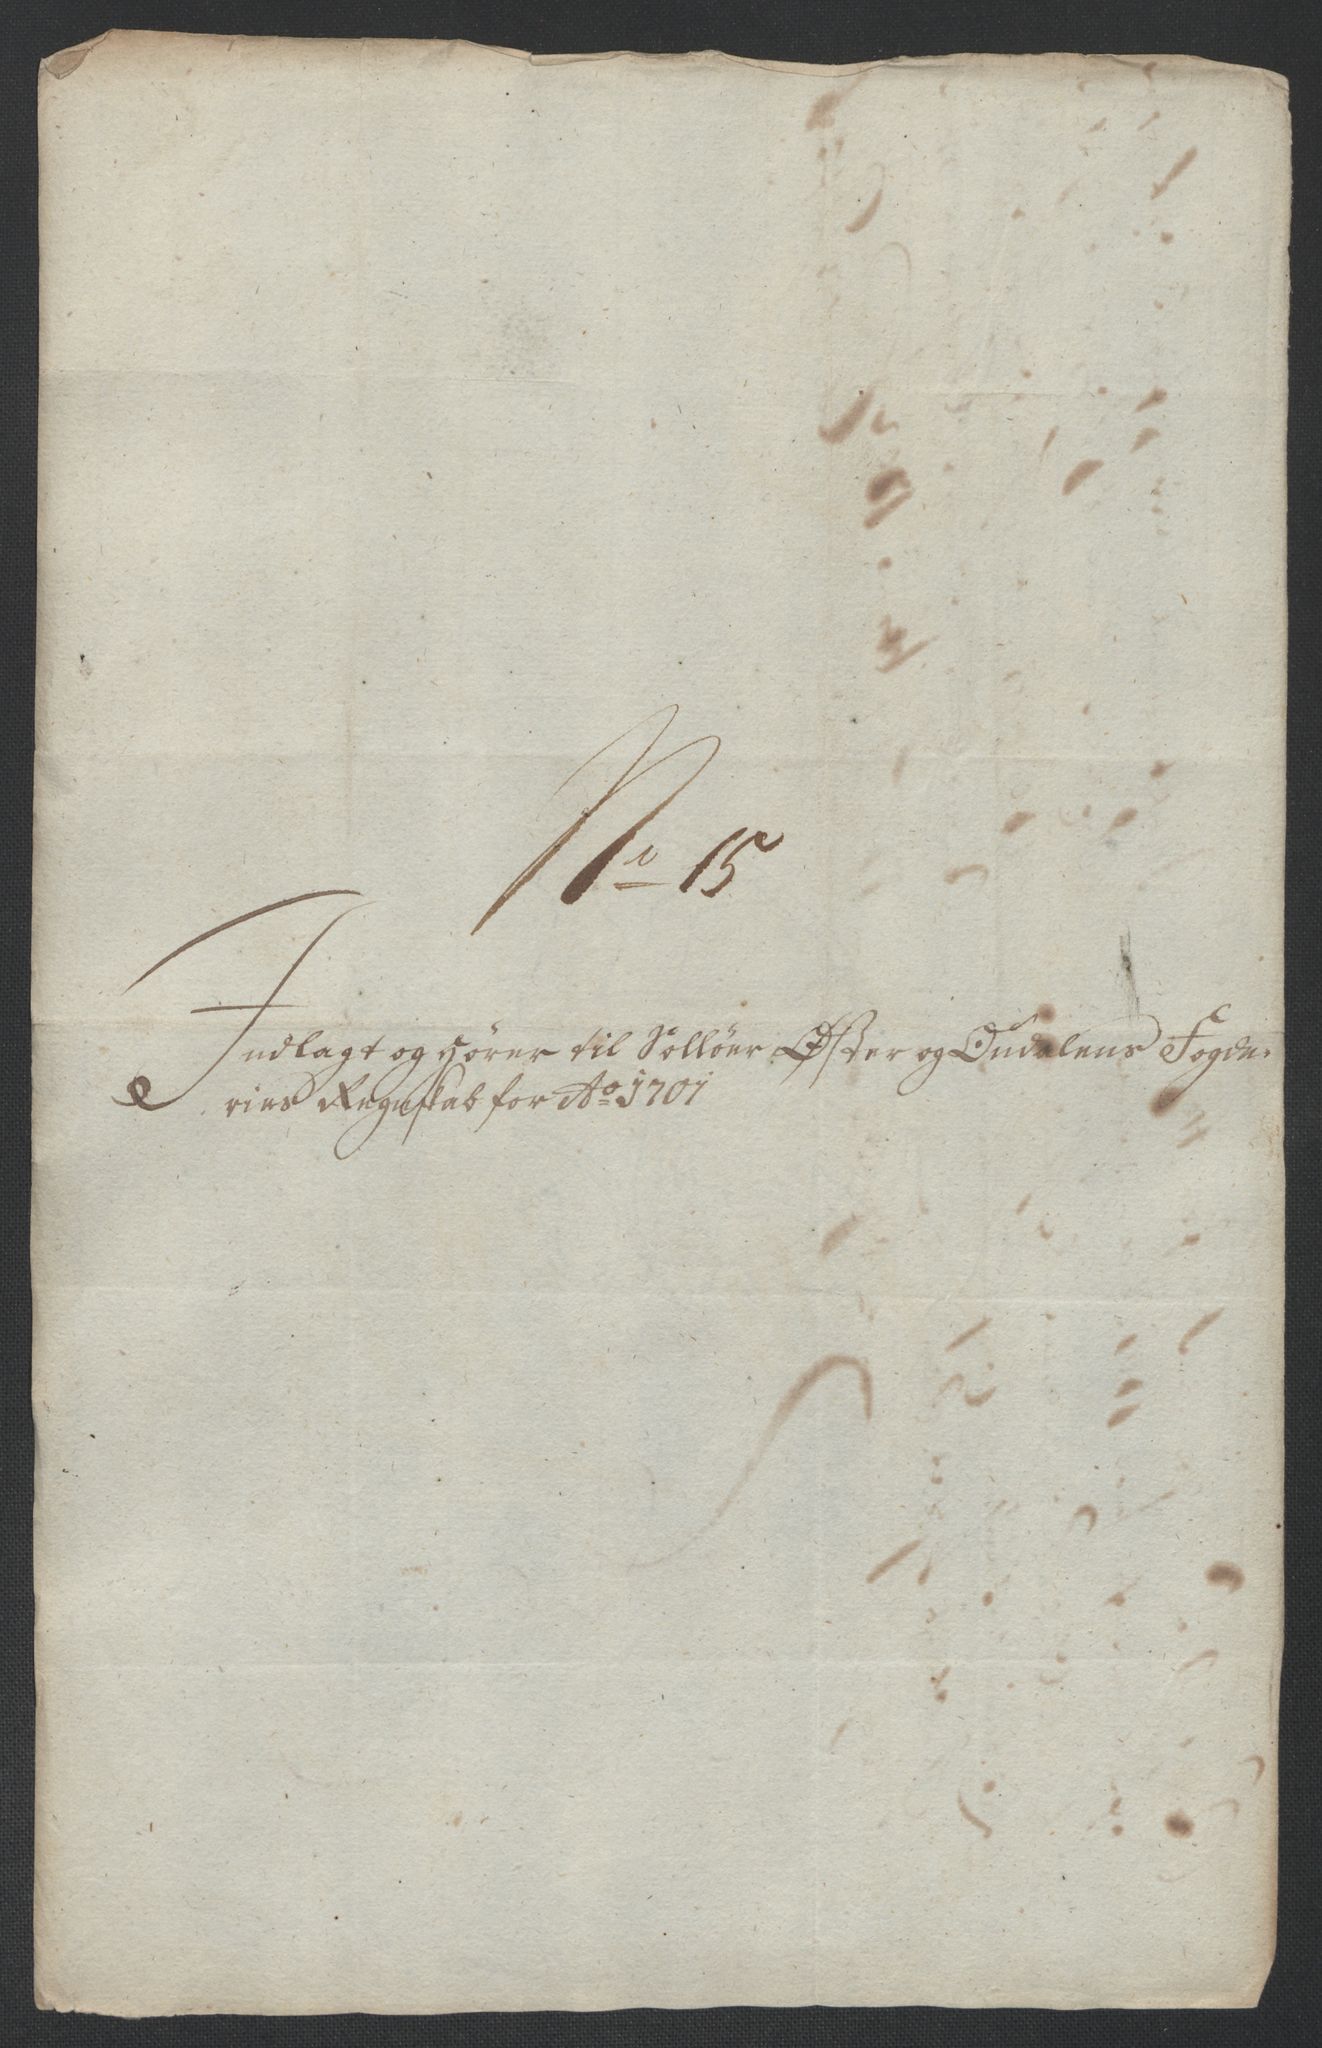 No 15
Indlagt og hörer til Sollöer Öster og Oudalens Fogde-
ries Regnskab for Ao 1701